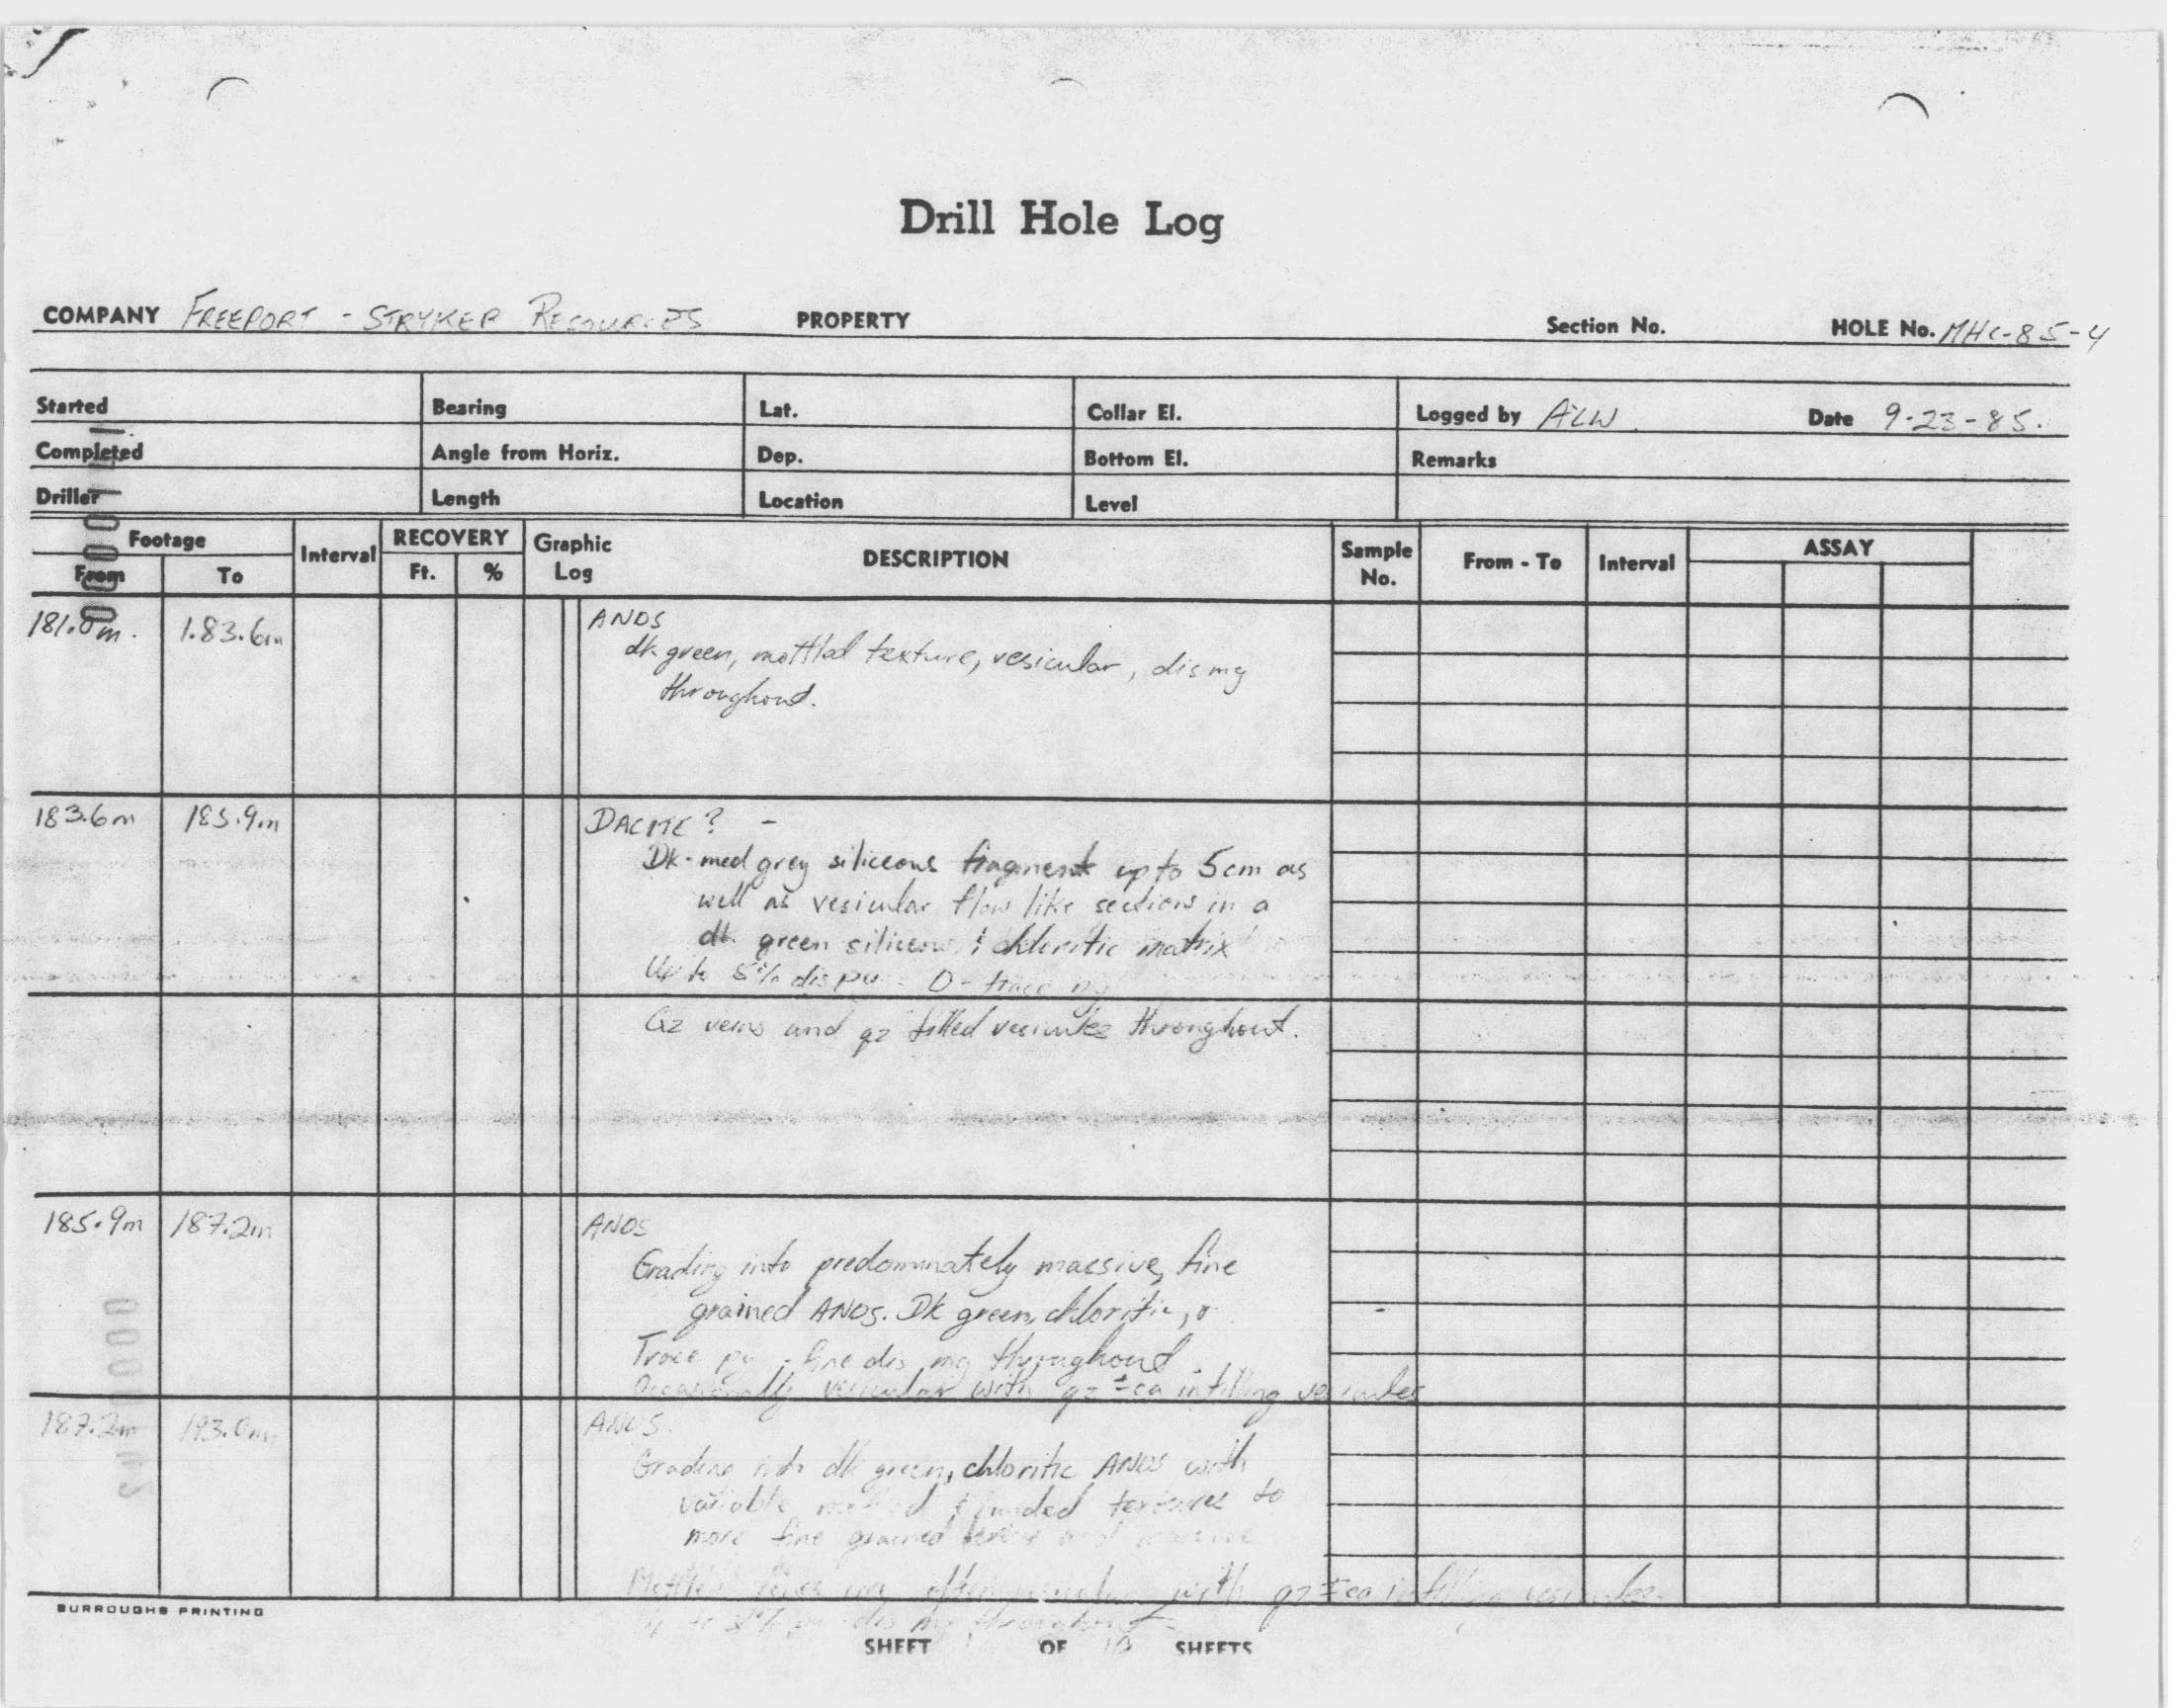 Drill Hole Log
COMPANY FREEPORT - STRYKER RESOURCES PROPERTY Section No. HOLE No. MHC-85-4
Started Bearing Lat. Collar El. Logged by ALW. Date 9-23-85.
Completed Angle from Horiz. Dep. Bottom El. Remarks
Driller Length Location Level
Footage Interval RECOVERY Graphic Log DESCRIPTION Sample No. From - To Interval ASSAY
From To Ft. %
181.0m. 183.6m ANDS
dk green, mottled texture, vesicular, dis mg
throughout.
183.6m 185.9m DACITE? -
Dk-med grey siliceous fragment up to 5cm as
well as vesicular flow like sections in a
dk green siliceous & chloritic matrix
Up to 5% dis - 0-trace mg
Qz veins and qz filled vesicules throughout.
185.9m 187.2m ANDS
Grading into predominately massive, fine
grained ANDS. Dk green, chloritic,
Trace fine dis mg throughout.
Occasionally vesicular with qz ± ca infilling vesicules
187.2m 193.0m ANDS.
Grading into dk green, chloritic ANDS with
variable & textures to
more fine grained
often with qz ± ca infilling
dis mg throughout
BURROUGHS PRINTING
SHEET OF 10 SHEETS